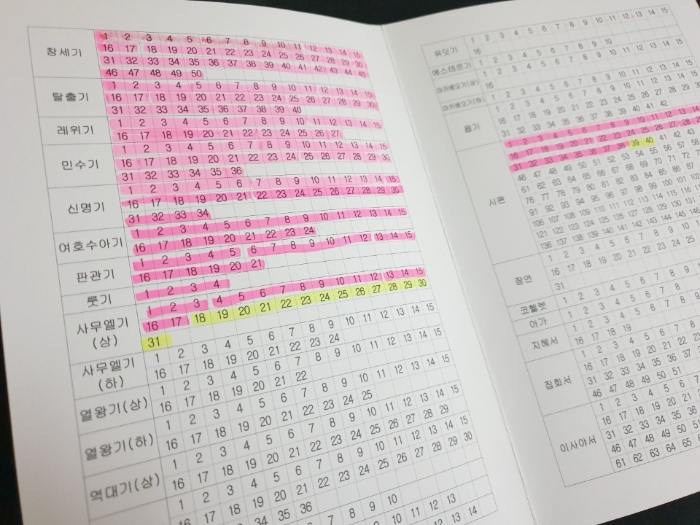 창세기
1 2 3 4 5 6 7 8 9 10 11 12 13 14 15
16 17 18 19 20 21 22 23 24 25 26 27 28 29 30
31 32 33 34 35 36 37 38 39 40 41 42 43 44 45
46 47 48 49 50
탈출기
1 2 3 4 5 6 7 8 9 10 11 12 13 14 15
16 17 18 19 20 21 22 23 24 25 26 27 28 29 30
31 32 33 34 35 36 37 38 39 40
레위기
1 2 3 4 5 6 7 8 9 10 11 12 13 14 15
16 17 18 19 20 21 22 23 24 25 26 27
민수기
1 2 3 4 5 6 7 8 9 10 11 12 13 14 15
16 17 18 19 20 21 22 23 24 25 26 27 28 29 30
31 32 33 34 35 36
신명기
1 2 3 4 5 6 7 8 9 10 11 12 13 14 15
16 17 18 19 20 21 22 23 24 25 26 27 28 29 30
31 32 33 34
여호수아기
1 2 3 4 5 6 7 8 9 10 11 12 13 14 15
16 17 18 19 20 21 22 23 24
판관기
1 2 3 4 5 6 7 8 9 10 11 12 13 14 15
16 17 18 19 20 21
룻기
1 2 3 4
사무엘기
(상)
1 2 3 4 5 6 7 8 9 10 11 12 13 14 15
16 17 18 19 20 21 22 23 24 25 26 27 28 29 30
31
사무엘기
(하)
1 2 3 4 5 6 7 8 9 10 11 12 13 14 15
16 17 18 19 20 21 22 23 24
열왕기(상)
1 2 3 4 5 6 7 8 9 10 11 12 13 14 15
16 17 18 19 20 21 22
열왕기(하)
1 2 3 4 5 6 7 8 9 10 11 12 13 14 15
16 17 18 19 20 21 22 23 24 25
역대기(상)
1 2 3 4 5 6 7 8 9 10 11 12 13 14 15
16 17 18 19 20 21 22 23 24 25 26 27 28 29
1 2 3 4 5 6 7 8 9 10 11 12 13 14 15
16 17 18 19 20 21 22 23 24 25 26 27 28 29 30
31 32 33 34 35 36
유딧기
1 2 3 4 5 6 7 8 9 10 11 12 13 14 15
16
에스테르기
1 2 3 4 5 6 7 8 9 10
마카베오기(상)
1 2 3 4 5 6 7 8 9 10 11 12 13 14 15
16
마카베오기(하)
1 2 3 4 5 6 7 8 9 10 11 12 13 14 15
욥기
1 2 3 4 5 6 7 8 9 10 11 12 13 14 15
16 17 18 19 20 21 22 23 24 25 26 27 28 29 30
31 32 33 34 35 36 37 38 39 40 41 42
시편
1 2 3 4 5 6 7 8 9 10 11 12 13
16 17 18 19 20 21 22 23 24 25 26 27 28
31 32 33 34 35 36 37 38 39 40 41 42
46 47 48 49 50 51 52 53 54 55 56 57 58
61 62 63 64 65 66 67 68 69 70 71 72
76 77 78 79 80 81 82 83 84 85 86 87
91 92 93 94 95 96 97 98 99 100 101
106 107 108 109 110 111 112 113 114 115
121 122 123 124 125 126 127 128 129 130 131
136 137 138 139 140 141 142 143 144 145
잠언
1 2 3 4 5 6 7 8 9 10
16 17 18 19 20 21 22 23 24 25
31
코헬렛
1 2 3 4 5 6 7 8 9
아가
1 2 3 4 5 6 7 8
지혜서
1 2 3 4 5 6 7 8
16 17 18 19
집회서
1 2 3 4 5 6 7 8
16 17 18 19 20 21 22
31 32 33 34 35 36 37
46 47 48 49 50 51
이사야서
1 2 3 4 5 6
16 17 18 19 20 21
31 32 33 34 35 36
46 47 48 49 50 51
61 62 63 64 65